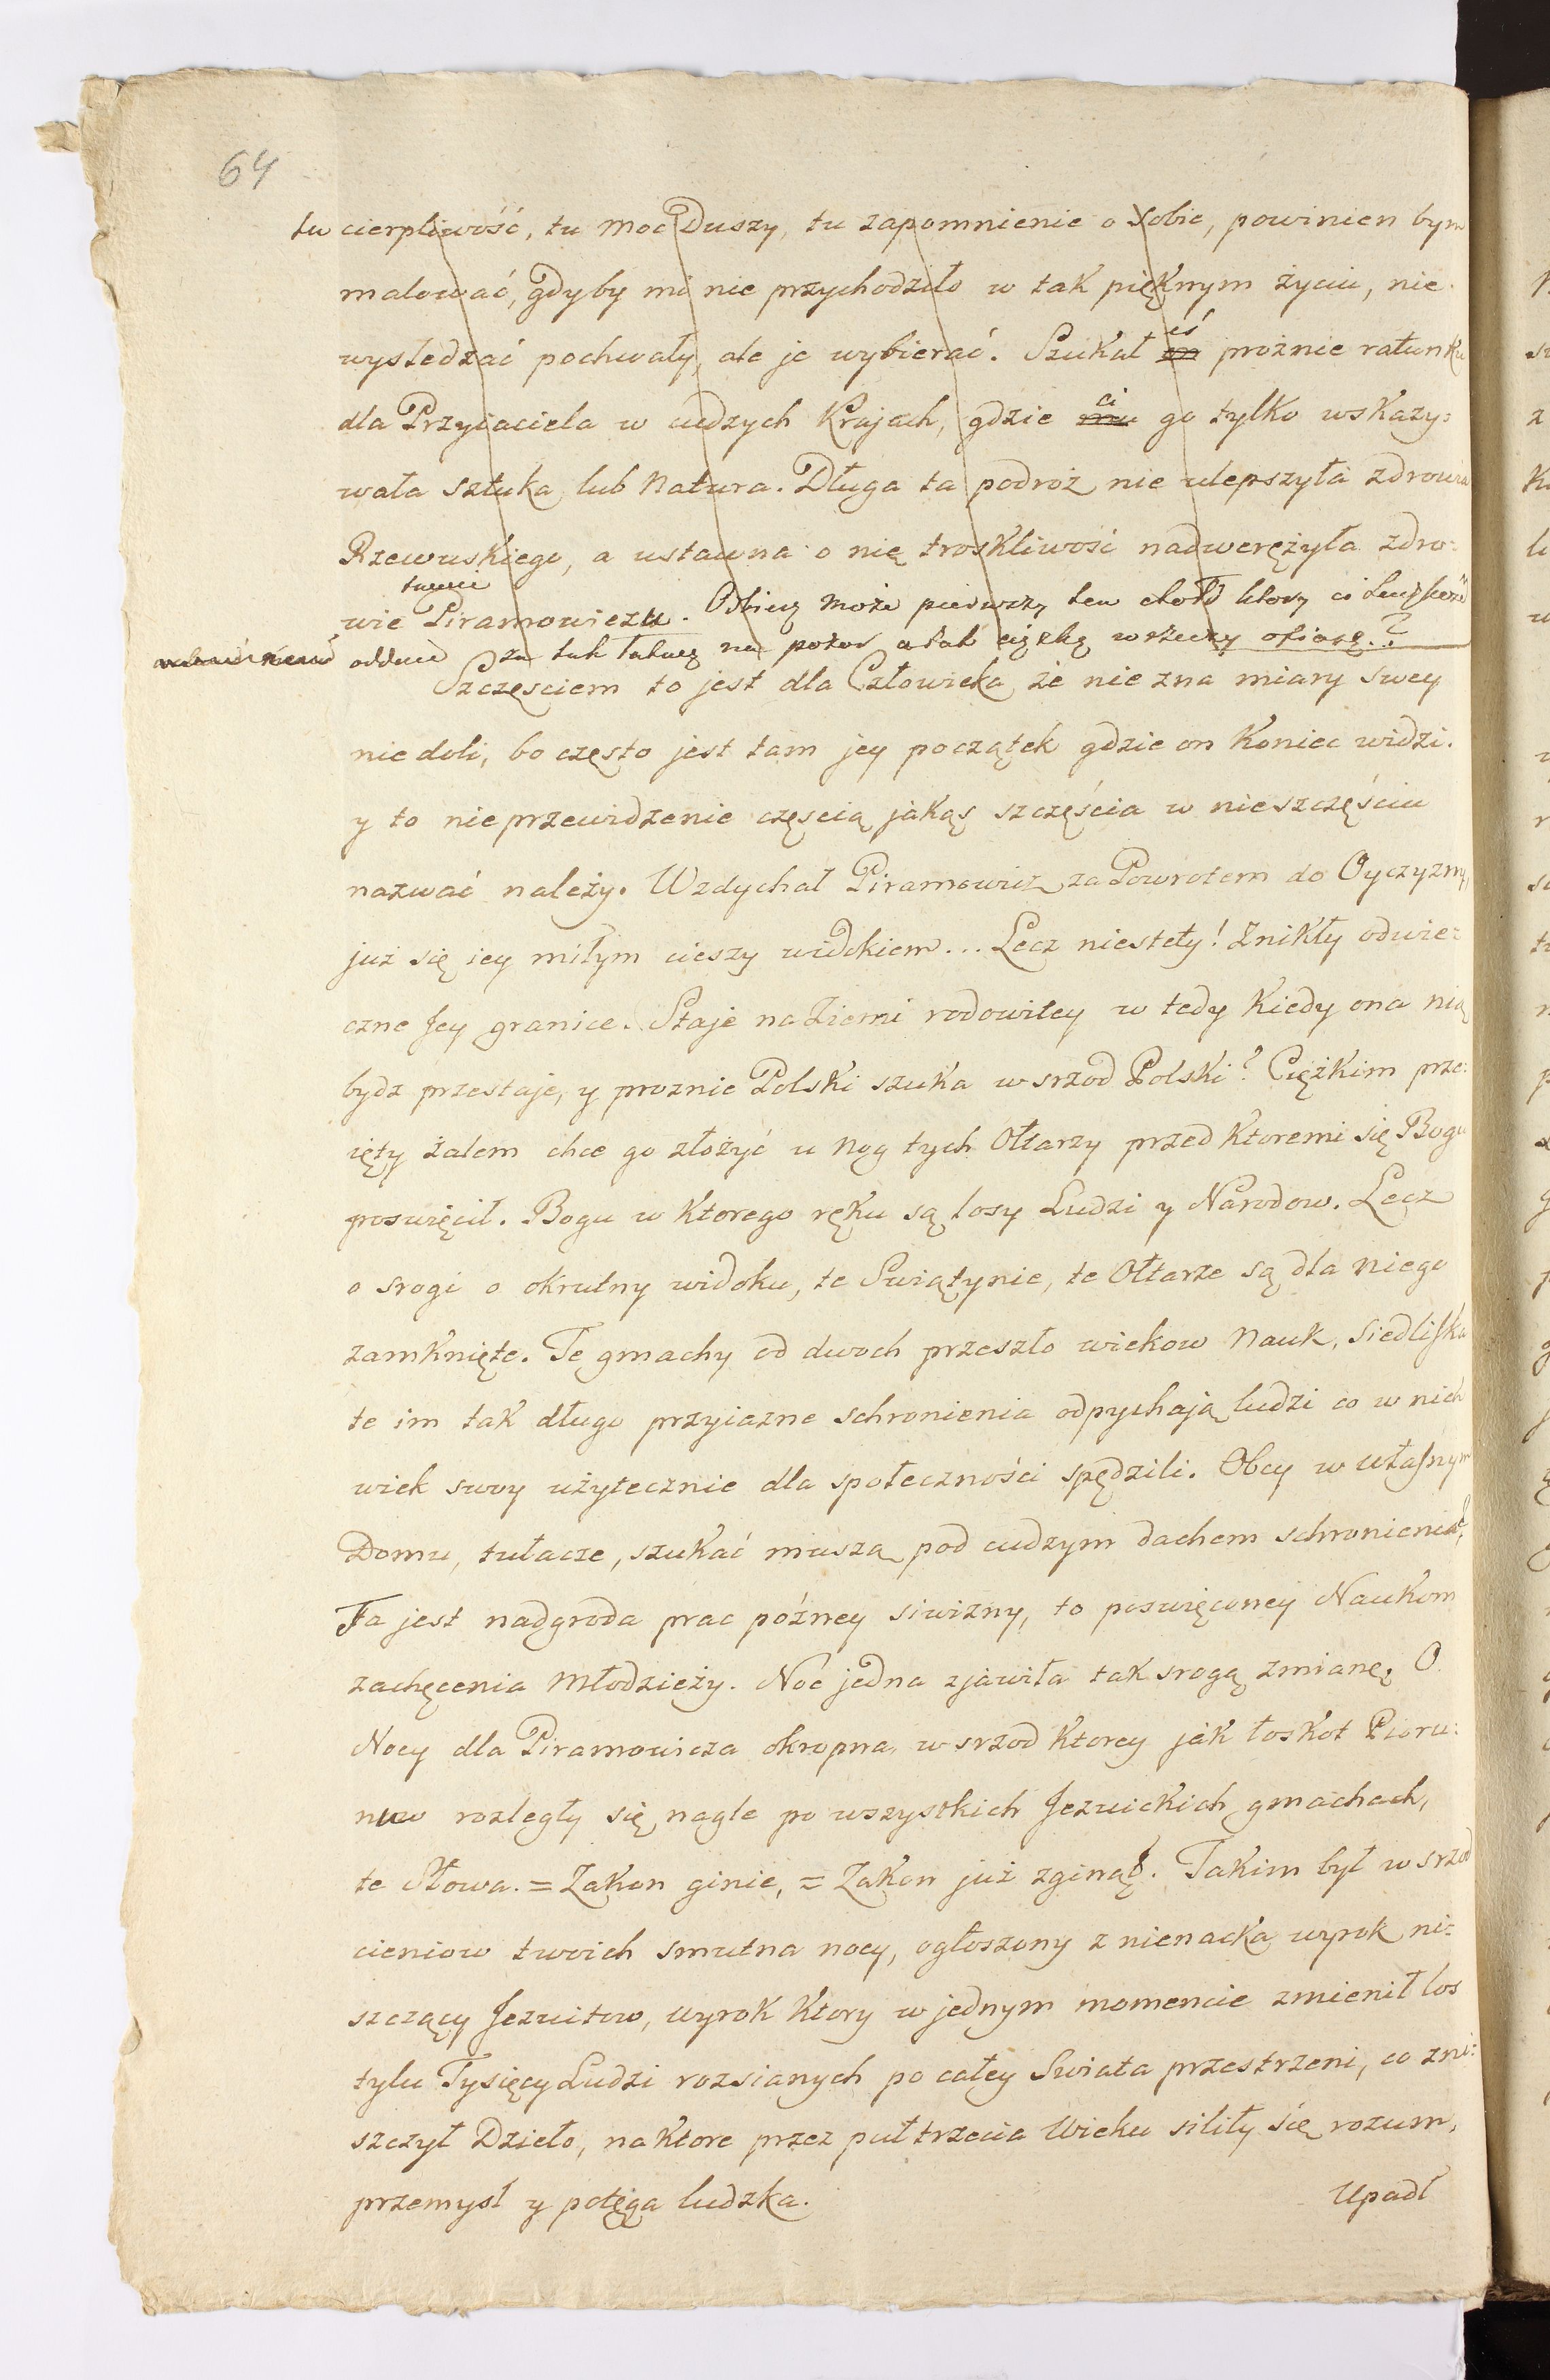 64
tu cierpliwość, tu moc Duszy, tu zapomnienie o Sobie, powinien bym
malować, gdyby mi nie przychodziło w tak pięknym życiu, nie
wysledzać pochwały, ale je wybierać. Szukał eś on prożnie ratunku
dla Przyiaciela w cudzych Krajach, gdzie ci mu go tylko wskazy:
wała sztuka lub Natura. Długa ta podroż nie ulepszyła zdrowia
Rzewuskiego, a ustawna o nię troskliwość nadwerężyła zdro:
wie Piramowiczu. Odbierz może pierwszy ten chołd ktory ci
oddaie za tak łatwą na pozor a tak ciężką w rzeczy ofiarę.?
Szczęsciem to jest dla Człowieka że nie zna miary swey
nie doli, bo często jest tam jey początek gdzie on Koniec widzi.
y to nie przewidzenie częscią jakąs szczęścia w nieszczęściu
nazwać należy. Wzdychał Piramowicz za Powrotem do Oyczyzny,
już się iey miłym cieszy widokiem... Lecz niestety! Znikły odwie:
czne Jey granice. Staje na Ziemi rodowitey w tedy Kiedy ona nią
bydz przestaje, y proznie Polski szuka w srzod Polski? Ciężkim prze:
ięty żalem chce go złożyć u Nog tych Ołtarzy przed Ktoremi się Bogu
poswięcił. Bogu w Ktorego ręku są losy Ludzi y Narodow. Lecz
o srogi o okrutny widoku, te Swiątynie, te Ołtarze są dla niego
zamknięte. Te gmachy od dwoch przeszło wiekow Nauk, Siedliska
te im tak długo przyiazne schronienia odpychają ludzi co w nich
wiek swoy użytecznie dla społeczności spędzili. Obcy w własnym
Domu, tułacze, szukać muszą pod cudzym dachem schronienia?
Ta jest nadgroda prac późney siwizny, to poswięconey Naukom
zachęcenia Młodzieży. Noc jedna zjawiła tak srogą zmianę. O
Nocy dla Piramowicza okropna, w srzod Ktorey jak łoskot Pioru:
nuw rozległy się nagle po wszystkich Jezuickich gmachach,
te Słowa. = Zakon ginie, = Zakon już zginął. Takim był w srzod
cieniow twoich smutna nocy, ogłoszony z nienacka wyrok ni:
szczący Jezuitow, wyrok Ktory w jednym momencie zmienił los
tylu Tysięcy Ludzi rozsianych po całey Swiata przestrzeni, co zni:
szczył Dzieło, na Ktore przez puł trzecia Wieku siliły się rozum,
przemysł y potęga ludzka.
Upadł